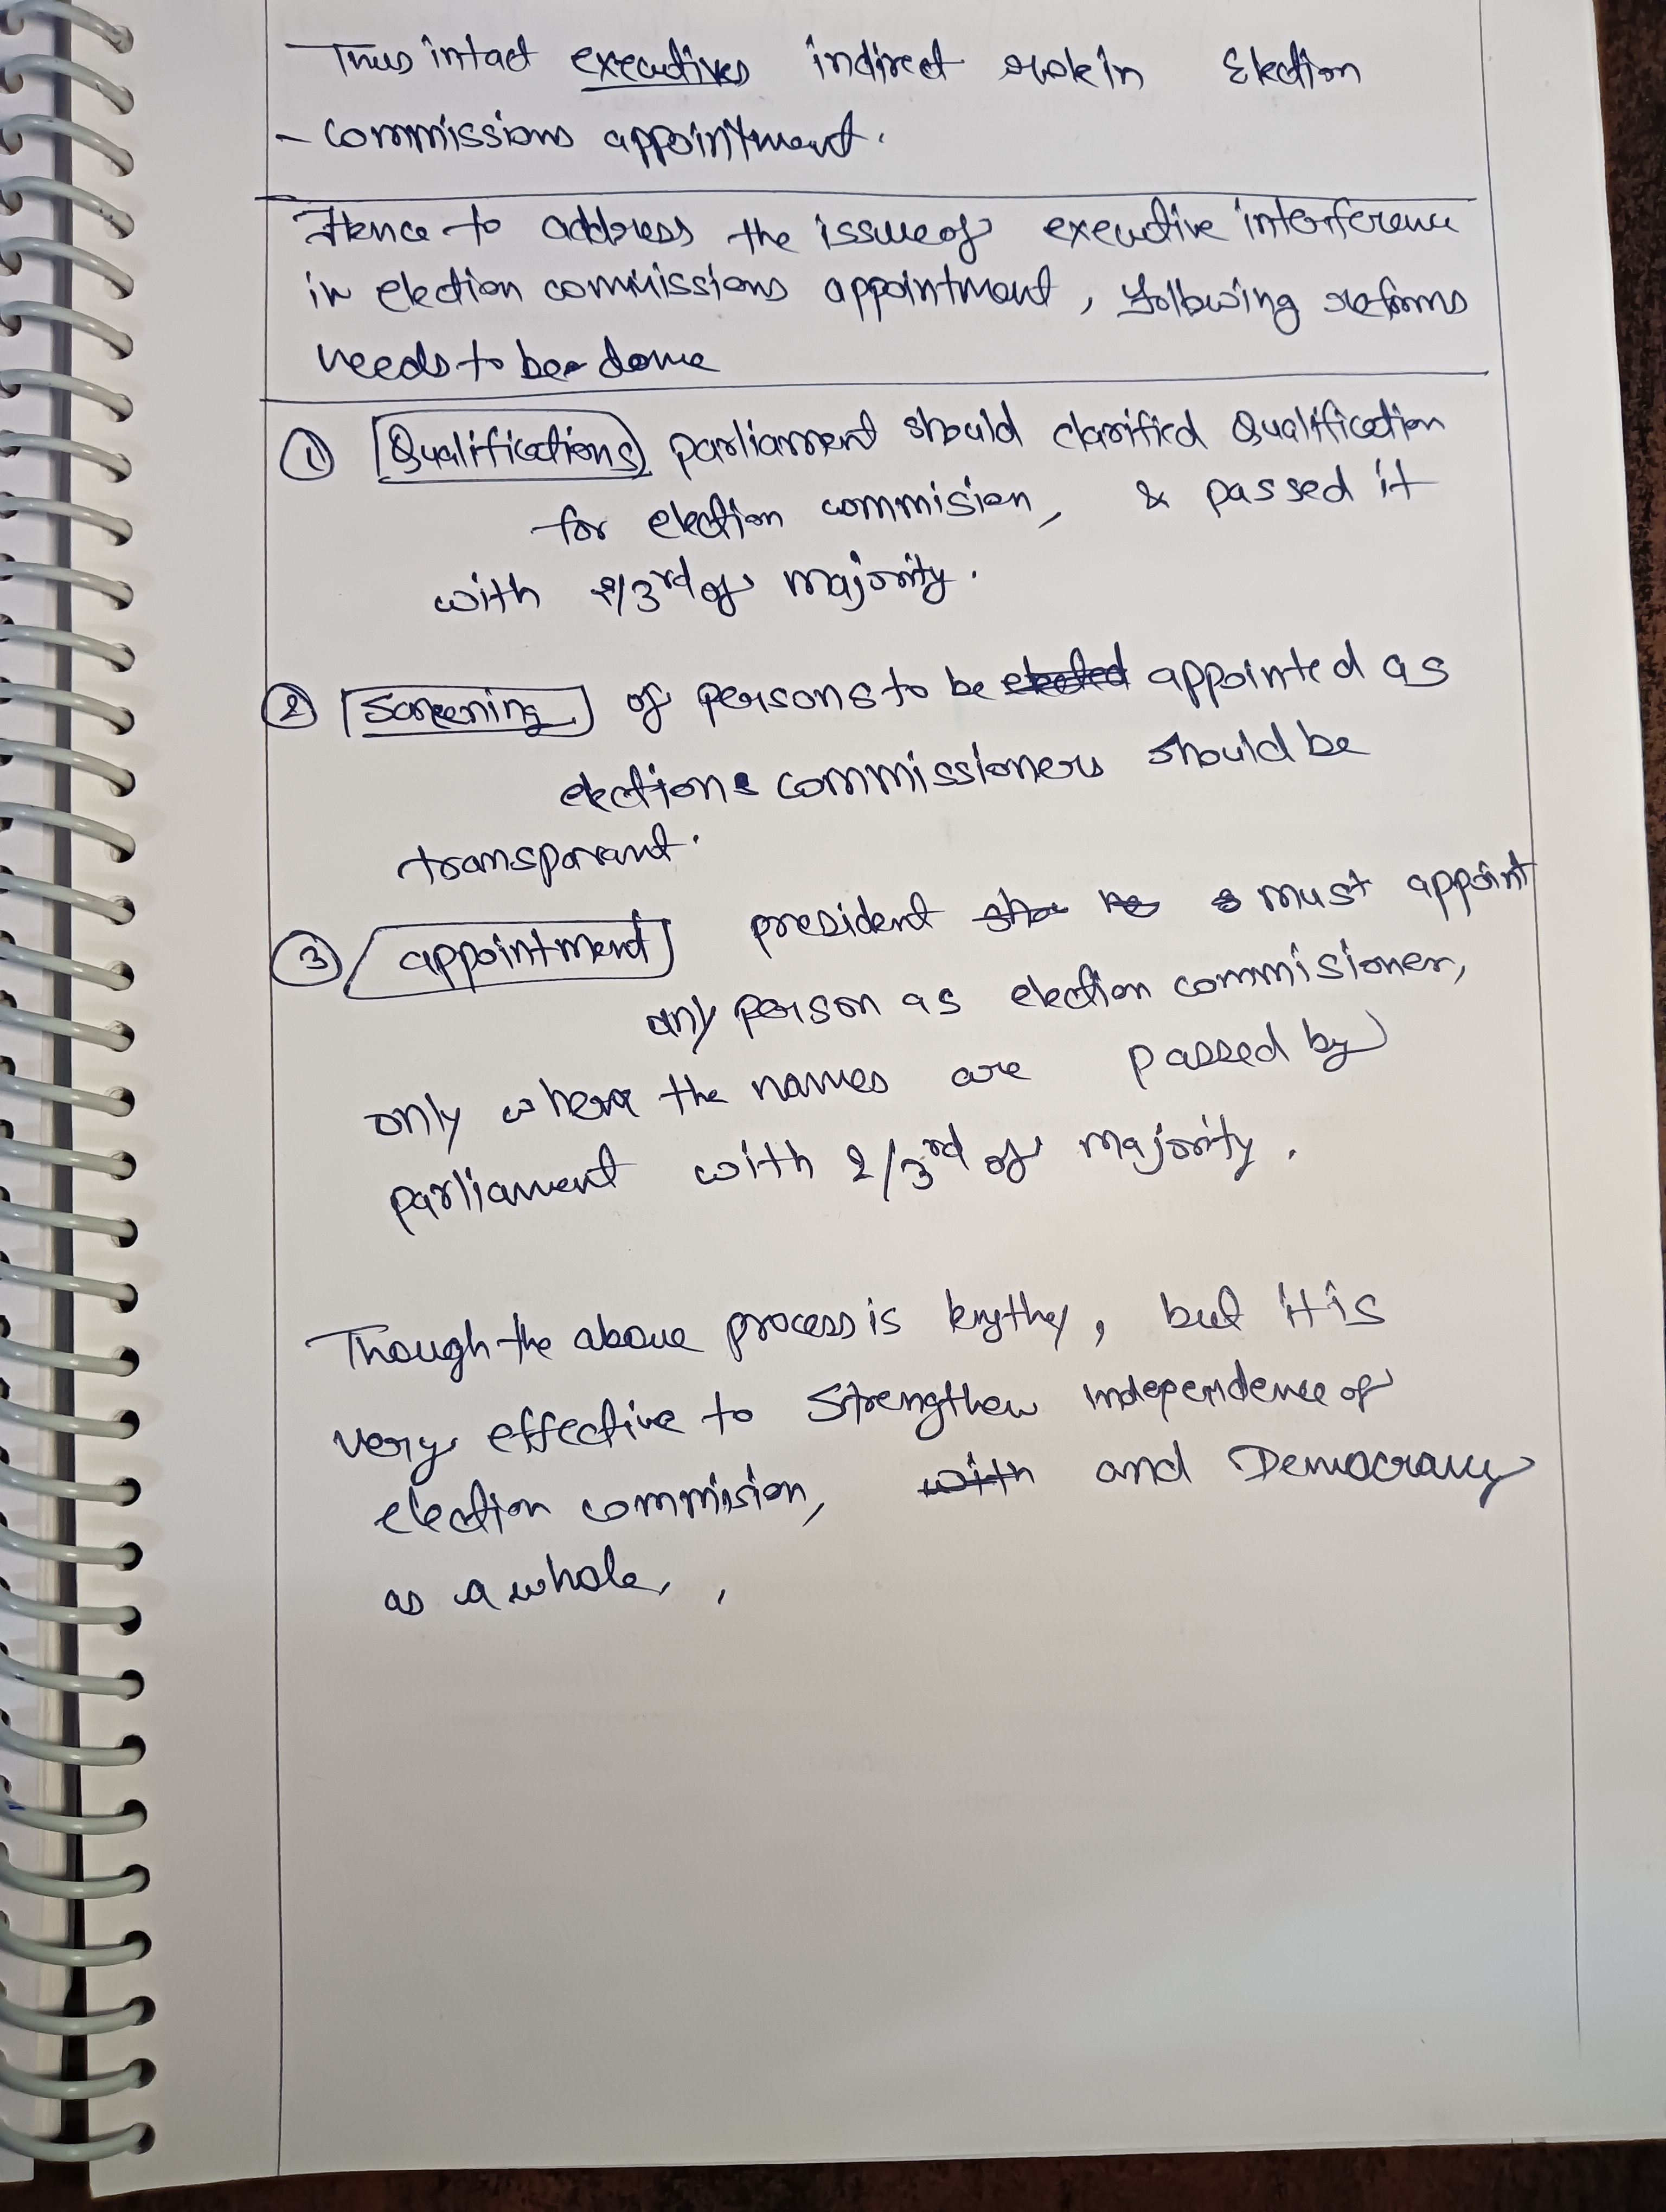 Thus intact executives indirect role in Election
- commissions appointment.
Hence to address the issue of executive interference
in election commissions appointment, following reforms
needs to bee done
① Qualifications parliament should clarified Qualification
for election commision, & passed it
with 2/3rd of majority.
② Screening of persons to be elected appointed as
elections commissioners should be
transparant.
③ appointment president must appoint
any person as election commisioner,
only where the names are passed by
parliament with 2/3rd of majority.
Though the above process is lengthey, but it is
very effective to strengthen independence of
election commision, with and Democracy
as a whole,